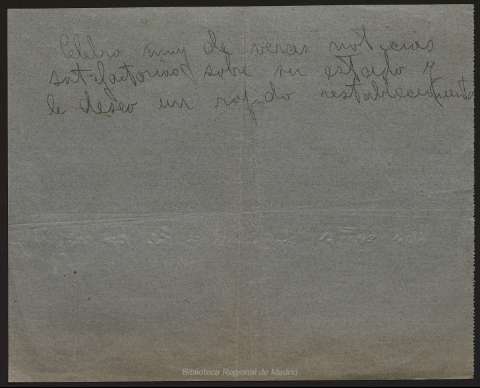 Celebro muy de veras noticias
satisfactorias sobre su estado y
le deseo un rapido restablecimiento
Biblioteca Regional de Madrid